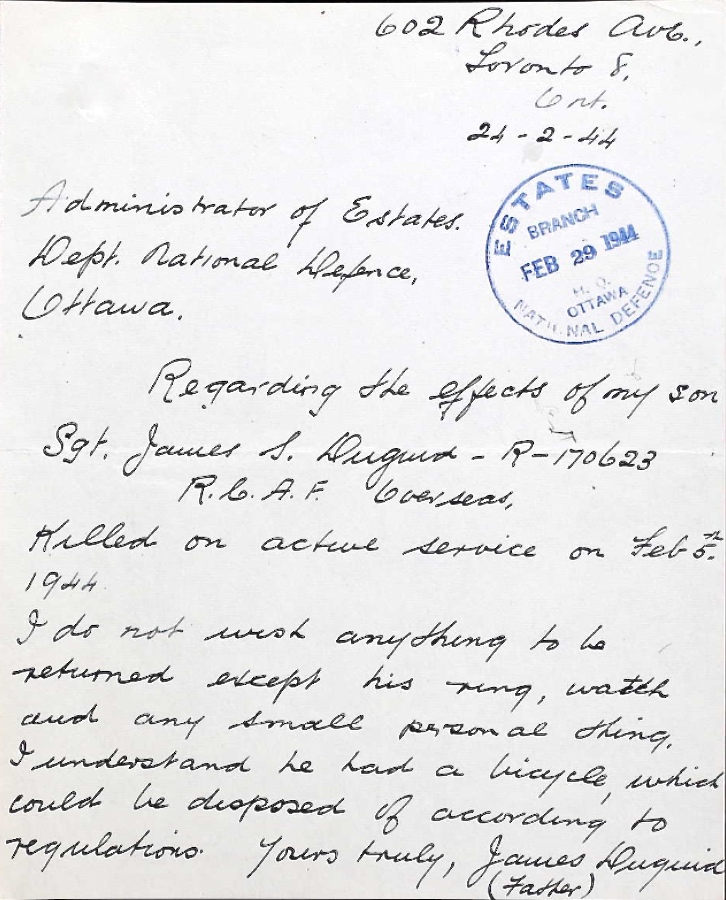 602 Rhodes Ave.,
Toronto 8,
Ont.
24-2-44
Administrator of Estates.
Dept. National Defence,
Ottawa.
ESTATES
BRANCH
FEB 29 1944
H. Q.
OTTAWA
NATIONAL DEFENCE
Regarding the effects of my son
Sgt. James S. Duguid - R-170623
R.C.A.F. Overseas,
Killed on active service on Feb 5th
1944
I do not wish anything to be
returned except his ring, watch
and any small personal thing.
I understand he had a bicycle, which
could be disposed of according to
regulations. Yours truly, James Duguid
(Father)